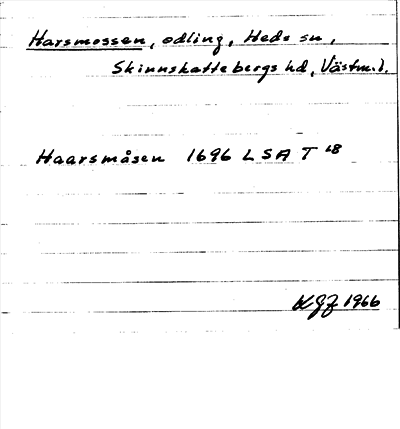 Harsmossen, odling, Heds sn,
Skinnskattebergs hd, Västm. l.
Haarsmåsen 1696 LSA T 48
KGJ 1966